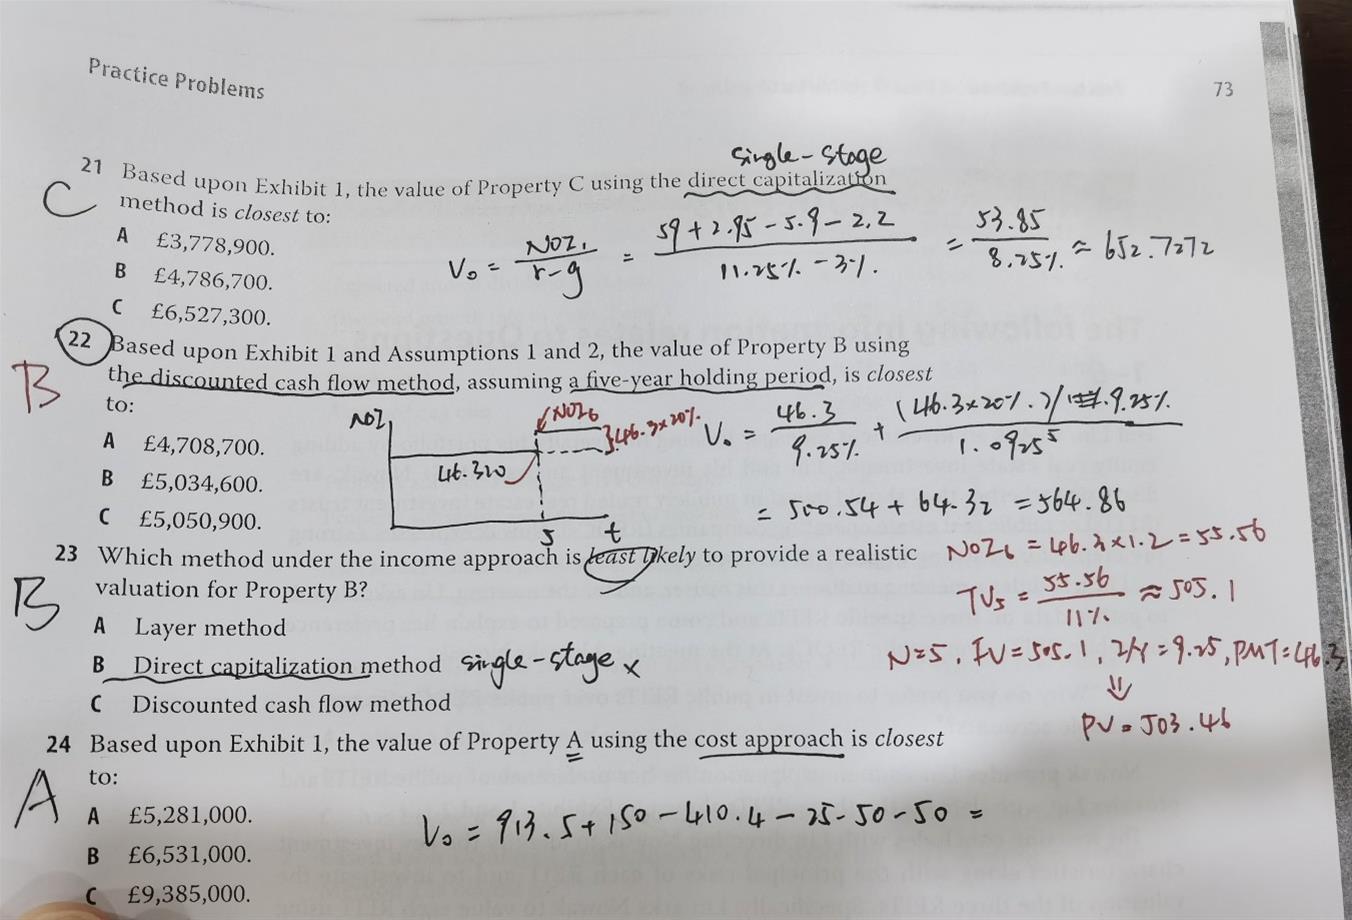 Practice Problems
73
single-stage
21 Based upon Exhibit 1, the value of Property C using the direct capitalization
C
method is closest to:
A £3,778,900.
B £4,786,700.
C £6,527,300.
V₀ = NOI₁ / r-g = 59+2.95-5.9-2.2 / 11.25%-3%. = 53.85 / 8.25% ≈ 652.7272
22 Based upon Exhibit 1 and Assumptions 1 and 2, the value of Property B using
B
the discounted cash flow method, assuming a five-year holding period, is closest
to:
A £4,708,700.
B £5,034,600.
C £5,050,900.
NOI
NOI6
}46.3×20%.
46.320
5
t
V₀ = 46.3 / 9.25% + (46.3×20%.)/ 9.25% / 1.0925⁵
= 500.54 + 64.32 = 564.86
23 Which method under the income approach is least likely to provide a realistic
valuation for Property B?
B
A Layer method
B Direct capitalization method single-stage ×
C Discounted cash flow method
NOI6 = 46.3×1.2 = 55.56
TV5 = 55.56 / 11% ≈ 505.1
N=5, FV=505.1, I/Y=9.25, PMT=46.3
⇓
PV = 503.46
24 Based upon Exhibit 1, the value of Property A using the cost approach is closest
to:
A
A £5,281,000.
B £6,531,000.
C £9,385,000.
V₀ = 913.5+150-410.4-25-50-50 =